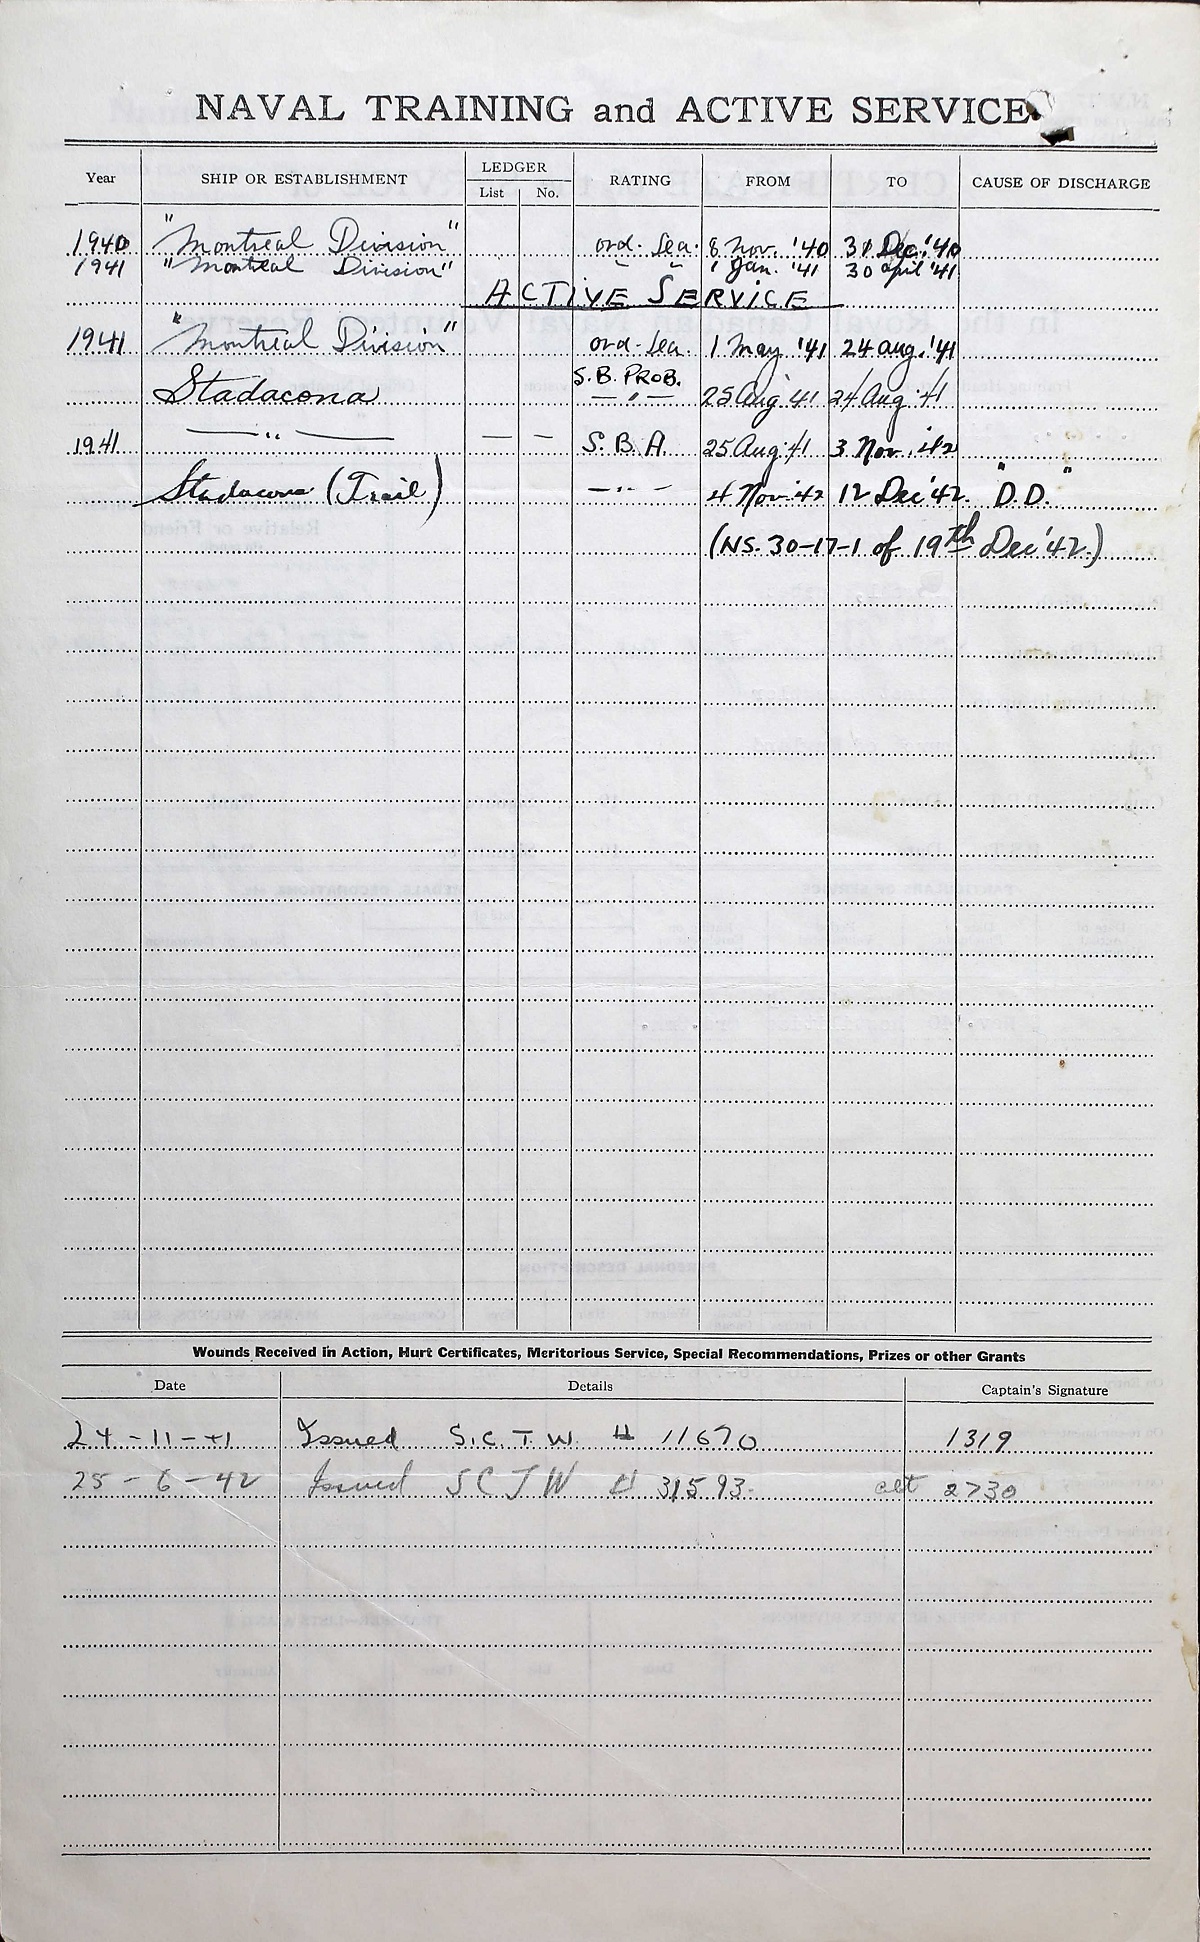 NAVAL TRAINING and ACTIVE SERVICE
Year SHIP OR ESTABLISHMENT LEDGER List No. RATING FROM TO CAUSE OF DISCHARGE
1940 "Montreal Division" ord. Sea. 8 Nov. '40 31 Dec. '40
1941 "Montreal Division" " " 1 Jan. '41 30 april '41
ACTIVE SERVICE
1941 "Montreal Division" ord. Sea. 1 May '41 24 aug. '41
S.B. PROB.
Stadacona — " — 25 Aug 41 24 Aug 41
1941 — " — — — S.B.A. 25 Aug 41 3 Nov. 42
Stadacona (Trail) — " — 4 Nov. '42 12 Dec '42. "D.D."
(NS. 30-17-1 of 19th Dec '42.)
Wounds Received in Action, Hurt Certificates, Meritorious Service, Special Recommendations, Prizes or other Grants
Date Details Captain's Signature
24-11-41 Issued S.C.T.W. # 11670 1319
25-6-42 Issued SCTW # 31593. 2730